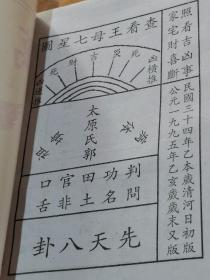 查看王母七星圖
照看吉凶事
家宅財喜斷
民國三十四年乙本歲清河日初版
公元一九九五年乙亥歲歲末又版
死
災
吉
財
死
太原氏郭
判問
功名
田土
官非
口舌
先天八卦